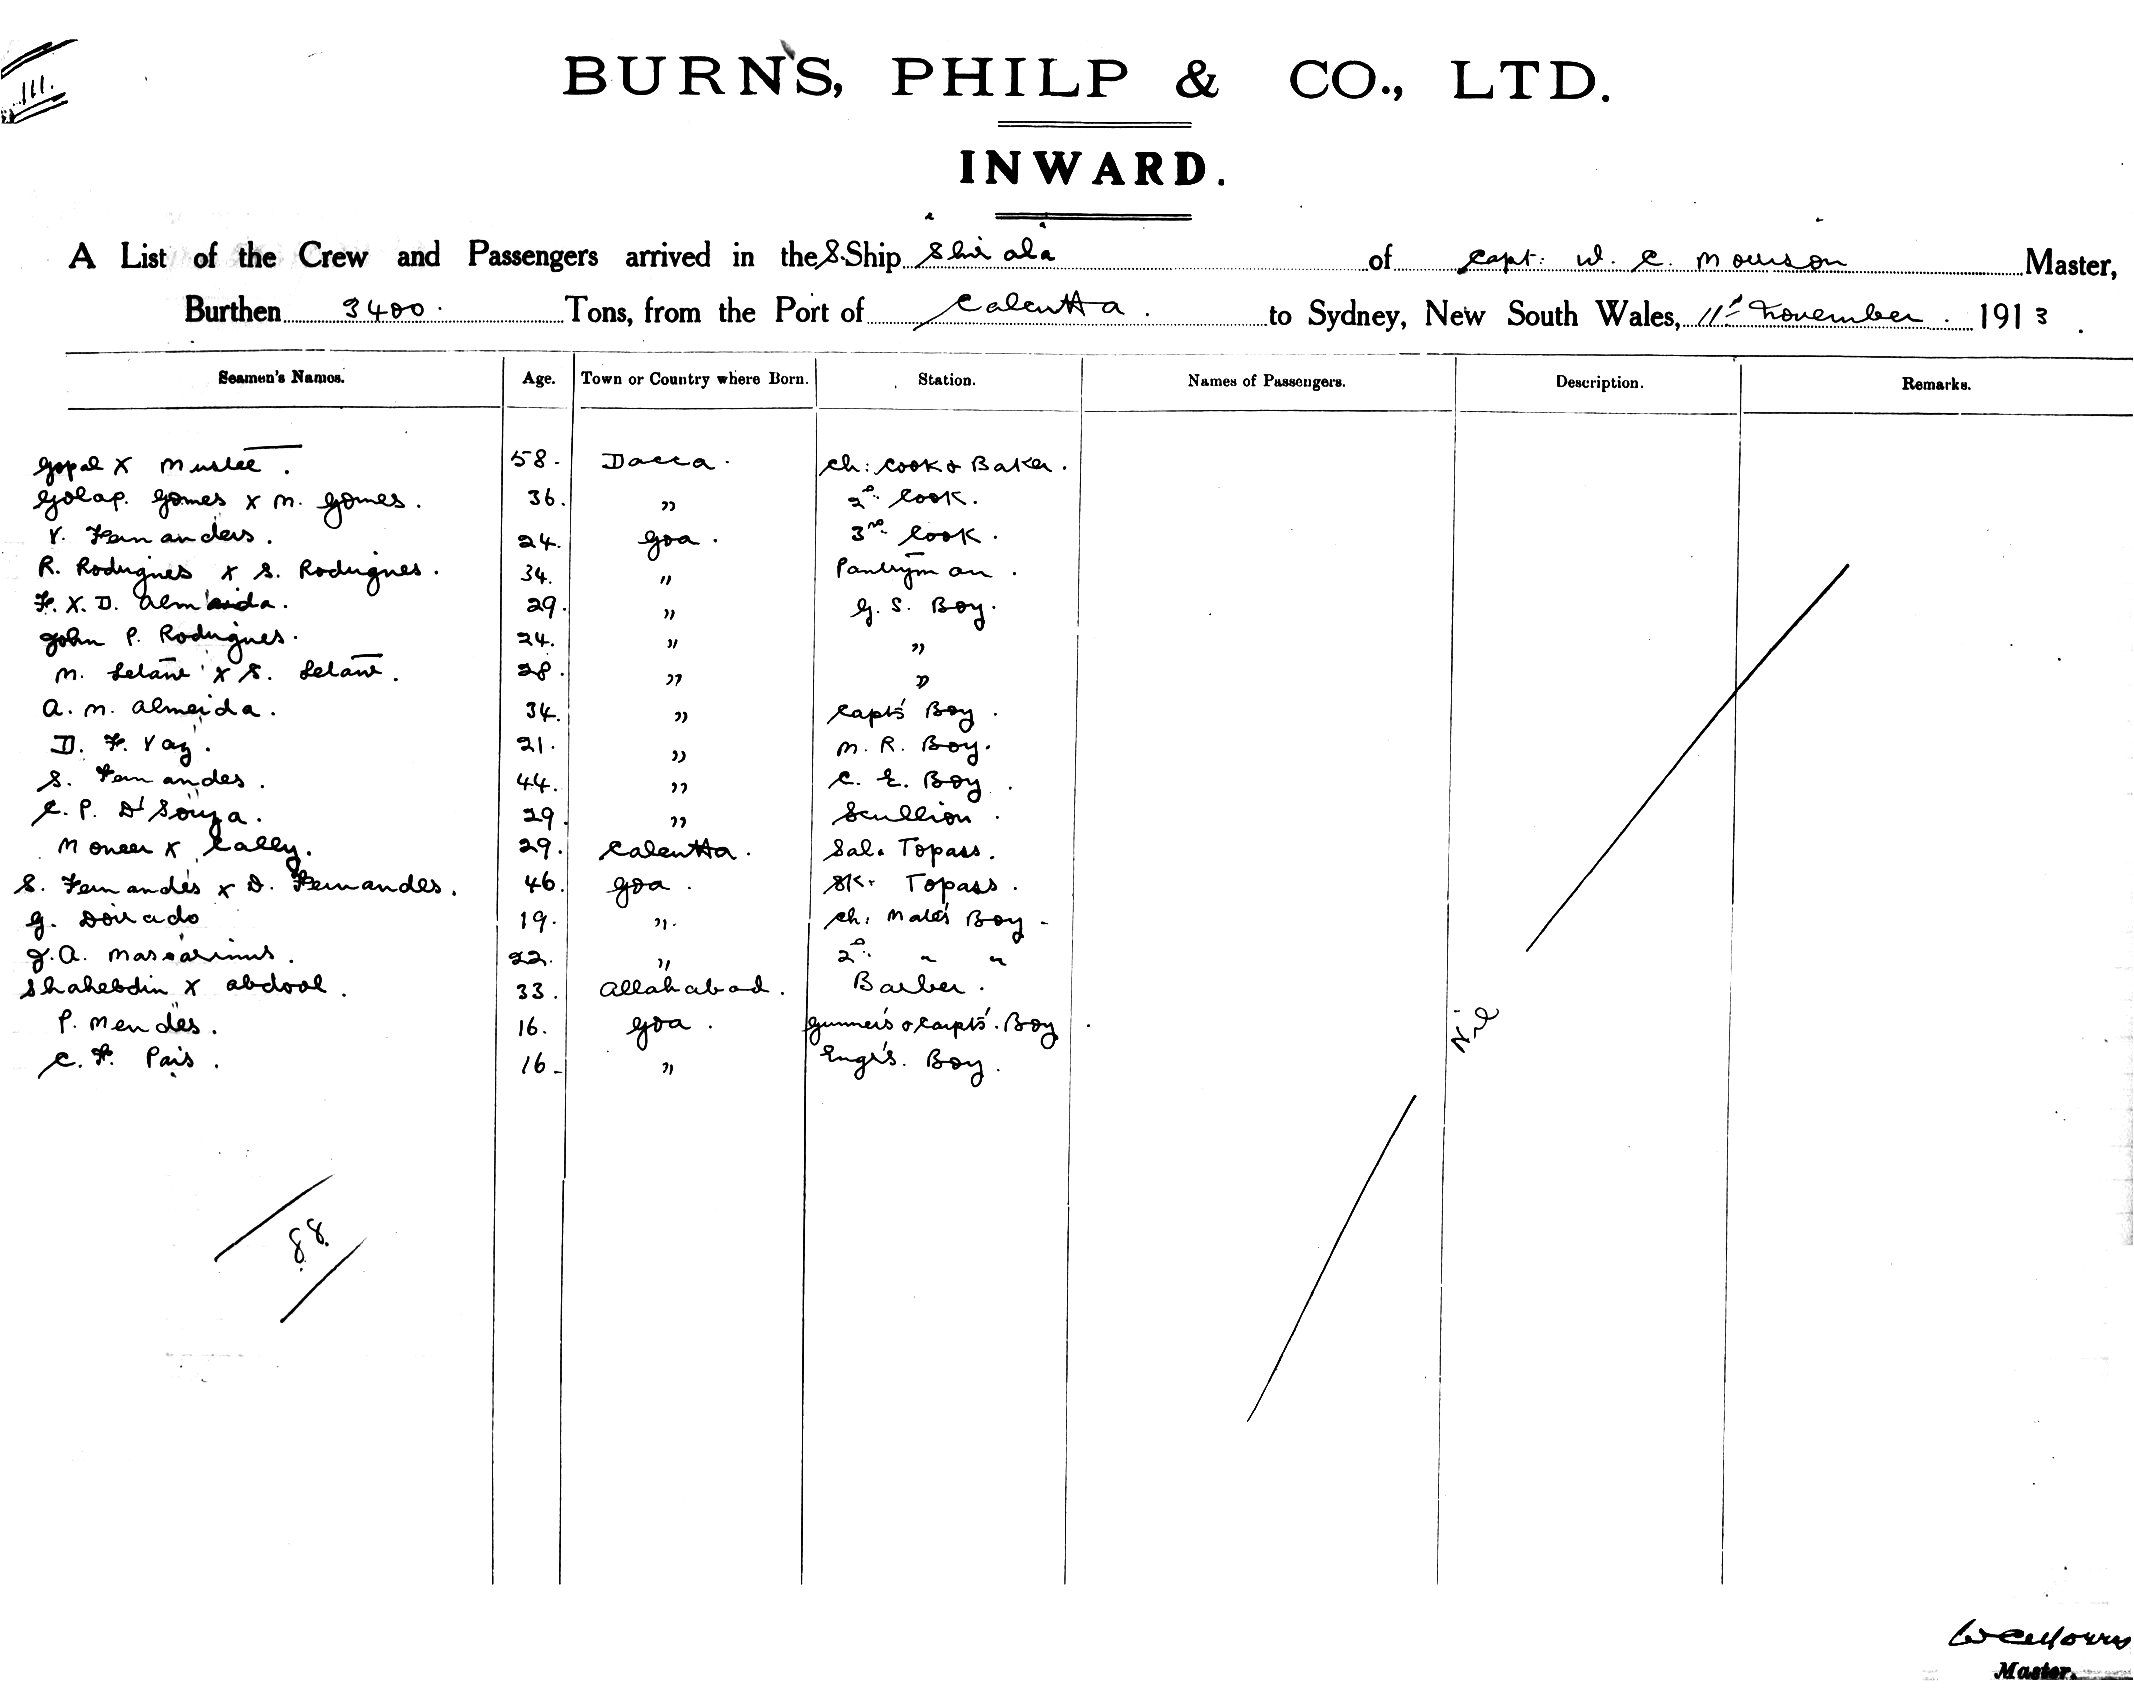 III.
BURNS, PHILP & CO., LTD.
INWARD.
A List of the Crew and Passengers arrived in the S.Ship Shirala of Capt. W. C. Morrison Master,
Burthen 3400. Tons, from the Port of Calcutta. to Sydney, New South Wales, 11th November. 1913.
Seamen's Names. Age. Town or Country where Born. Station. Names of Passengers. Description. Remarks.
Gopal X Mustee. 58. Dacca. Ch: Cook & Baker.
Golap. Gomes X M. Gomes. 36. " 2nd Cook.
V. Fernanders. 24. Goa. 3rd Cook.
R. Rodrigues X S. Rodrigues. 34. " Pantryman.
F. X. D. Almaida. 29. " G. S. Boy.
John P. Rodrigues. 24. " "
M. X S. 28. " "
A. M. Almeida. 34. " Capt's Boy.
D. F. Vaz. 21. " M. R. Boy.
S. Fernandes. 44. " C. E. Boy.
C. P. D'Souza. 29. " Scullion.
Moneer X Cally. 29. Calcutta. Sal. Topass.
S. Fernandes X D. Fernandes. 46. Goa. SK. Topass.
G. Dourado 19. " Ch: Mate's Boy
J. A. 22. " 2nd " "
Shahebdin X Abdool. 33. Allahabad. Barber.
P. Mendes. 16. Goa. Gunner's & Carpt's. Boy.
C. F. Pais. 16 " Engr's. Boy.
Nil
88.
W C Morris
Master.